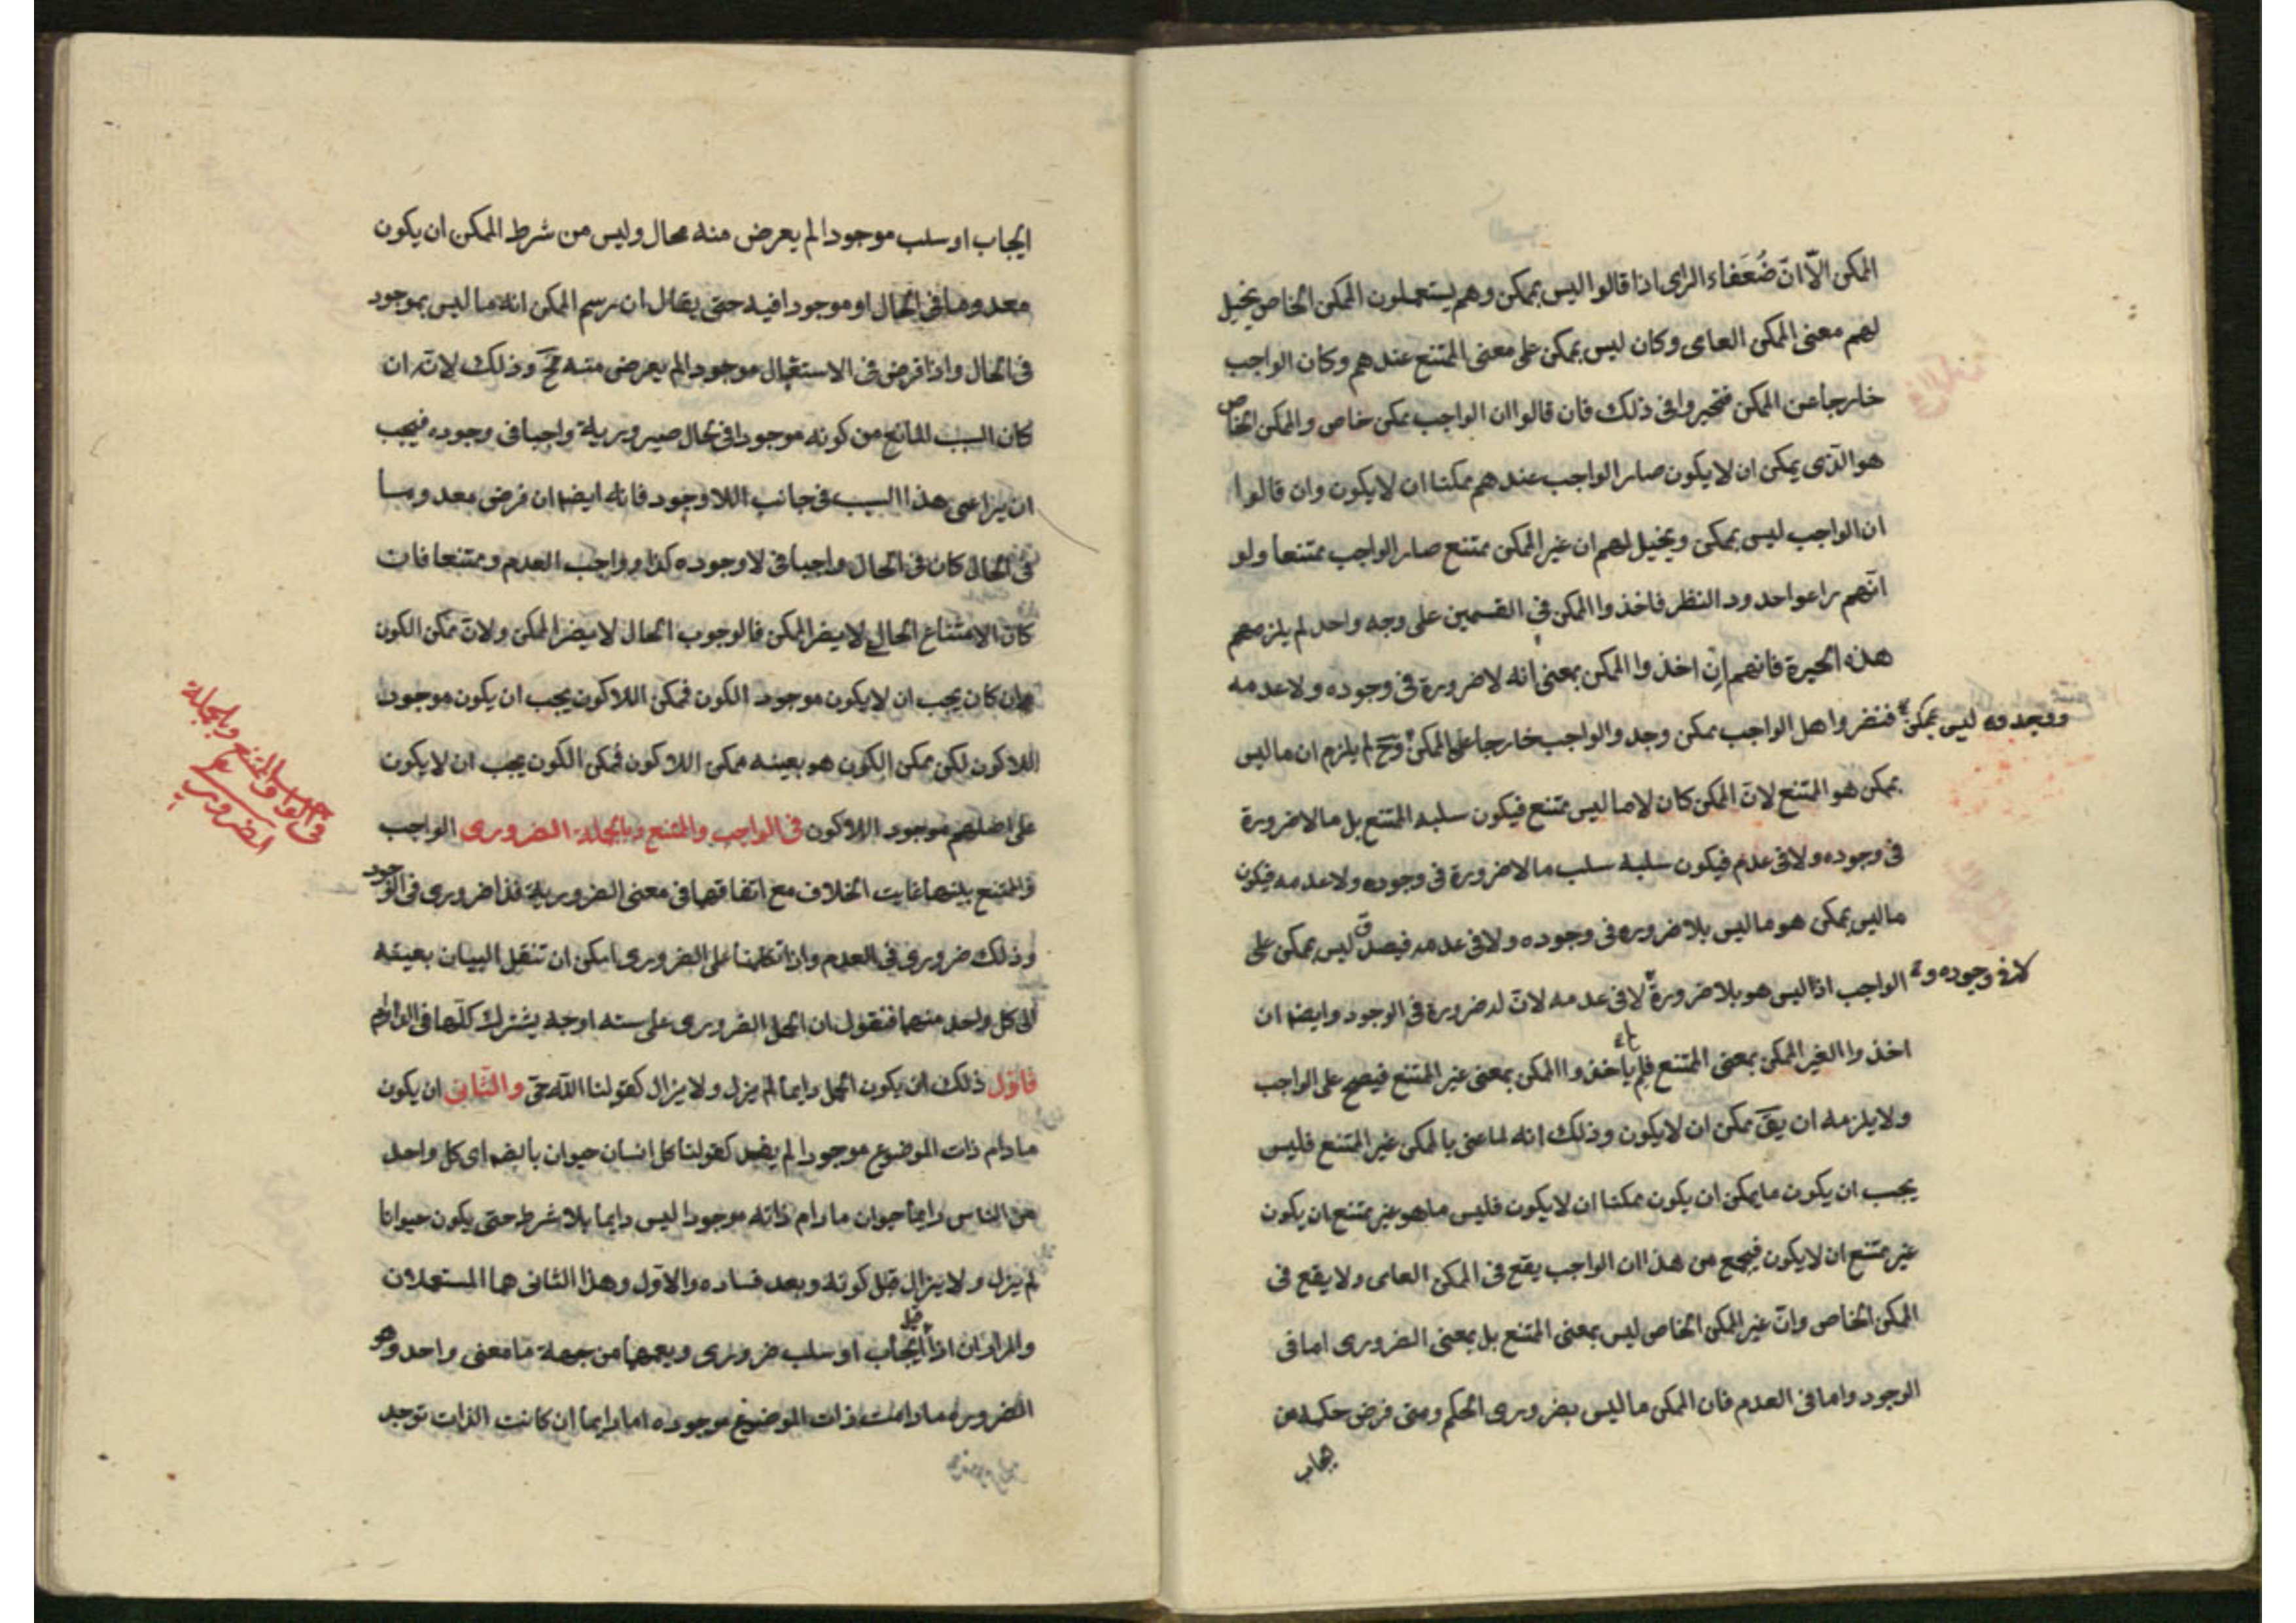 الممكن الّا انّ ضُعَفاء الراى اذا قالوا ليس بممكن وهم يستعملون الممكن الخاص يخيل
لهم معنى الممكن العامى وكان ليس بممكن على معنى الممتنع عندهم وكان الواجب
خارجا عن الممكن فتحيروا فى ذلك فان قالوا ان الواجب ممكن خاص والممكن الخاص
هو الذى يمكن ان لا يكون صار الواجب عندهم ممكنا ان لا يكون وان قالوا
ان الواجب ليس بممكن ويخيل لهم ان غير الممكن ممتنع صار الواجب ممتنعا ولو
انهم راعوا حدود النظر فاخذوا الممكن فى القسمين على وجه واحد لم يلزمهم
هذه الحيرة فانهم ان اخذوا الممكن بمعنى انه لا ضرورة فى وجوده ولا عدمه
ووجدوه ليس بممكن فنضروا هل الواجب ممكن وجد والواجب خارجا عن الممكن وح لم يلزم ان ما ليس
بممكن هو الممتنع لان الممكن كان لا ما ليس بممتنع فيكون سلبه الممتنع بل ما لا ضرورة
فى وجوده ولا فى عدم فيكون سلبه سلب ما لا ضرورة فى وجوده ولا عدمه فيكون
ما ليس بممكن هو ما ليس بلا ضروره فى وجوده ولا فى عدمه فيصدق ليس بممكن على
الواجب اذا ليس هو بلا ضرورة لا فى وجوده و لا فى عدمه لان له ضرورة فى الوجود وايضا ان
اخذوا الغير الممكن بمعنى الممتنع فلم ياخذوا الممكن بمعنى غير الممتنع فيصح على الواجب
ولا يلزمه ان يقَ ممكن ان لا يكون وذلك انه لما عنى بالممكن غير الممتنع فليس
يجب ان يكون ما يمكن ان يكون ممكنا ان لا يكون فليس ما هو غير ممتنع ان يكون
غير ممتنع ان لا يكون فيجمع من هذا ان الواجب يقع فى الممكن العامى ولا يقع فى
الممكن الخاص وانّ غير الممكن الخاص ليس بمعنى الممتنع بل بمعنى الضرورى اما فى
الوجود واما فى العدم فان الممكن ما ليس بضرورى الحكم ومتى فرض حكمه من
يجاب
ايجاب او سلب موجودا لم يعرض منه محال وليس من شرط الممكن ان يكون
معدوما فى الحال او موجودا فيه حتى يقال ان رسم الممكن انه ما ليس بموجود
فى الحال واذا فرض فى الاستقبال موجودا لم يعرض منه مح وذلك لانه ان
كان السبب المانع من كونه موجودا فى الحال صيرورية واجبا فى وجوده فيجب
ان يراعى هذا السبب فى جانب اللاوجود فانه ايضا ان فرض معدوما
فى الحال كان فى الحال واجبا فى لا وجوده كذا وواجب العدم وممتنعا فان
كان الامتناع الحالى لا يضر الممكن فالوجوب الحال لا يضر الممكن ولان ممكن الكون
ان كان يجب ان لا يكون موجود الكون فممكن اللاكون يجب ان يكون موجود
اللاكون لكن ممكن الكون هو بعينه ممكن اللاكون فممكن الكون يجب ان لا يكون
على اصلهم موجود اللاكون فى الواجب والممتنع وبالجملة الضرورى الواجب
والممتنع بينهما غايت الخلاف مع اتفاقهما فى معنى الضرورية فذا ضرورى فى الوجود
وذلك ضرورى فى العدم واذا تكلمنا على الضرورى امكن ان تنقل البيان بعينه
الى كل واحد منهما فنقول ان الحمل الضرورى على سته اوجه يشترك كلها فى الدوام
فاول ذلك ان يكون الحمل دايما لم يزل ولا يزال كقولنا الله حى والثانى ان يكون
مادام ذات الموضوع موجودا لم يفسد كقولنا كل انسان حيوان بالضم اى كل واحد
من الناس دايما حيوان مادام ذاته موجودا ليس دايما بلا شرط حتى يكون حيوانا
لم يزل ولا يزال قبل كونه وبعد فساده والاول وهذا الثانى هما المستعملان
والمرادان اذا قيل ايجاب او سلب ضرورى ويعمهما من جهة ما معنى واحد وهو
الضرورة مادامت ذات الموضوع موجوده اما دايما ان كانت الذات توجد
فى الواجب والممتنع وبالجملة
الضرورى